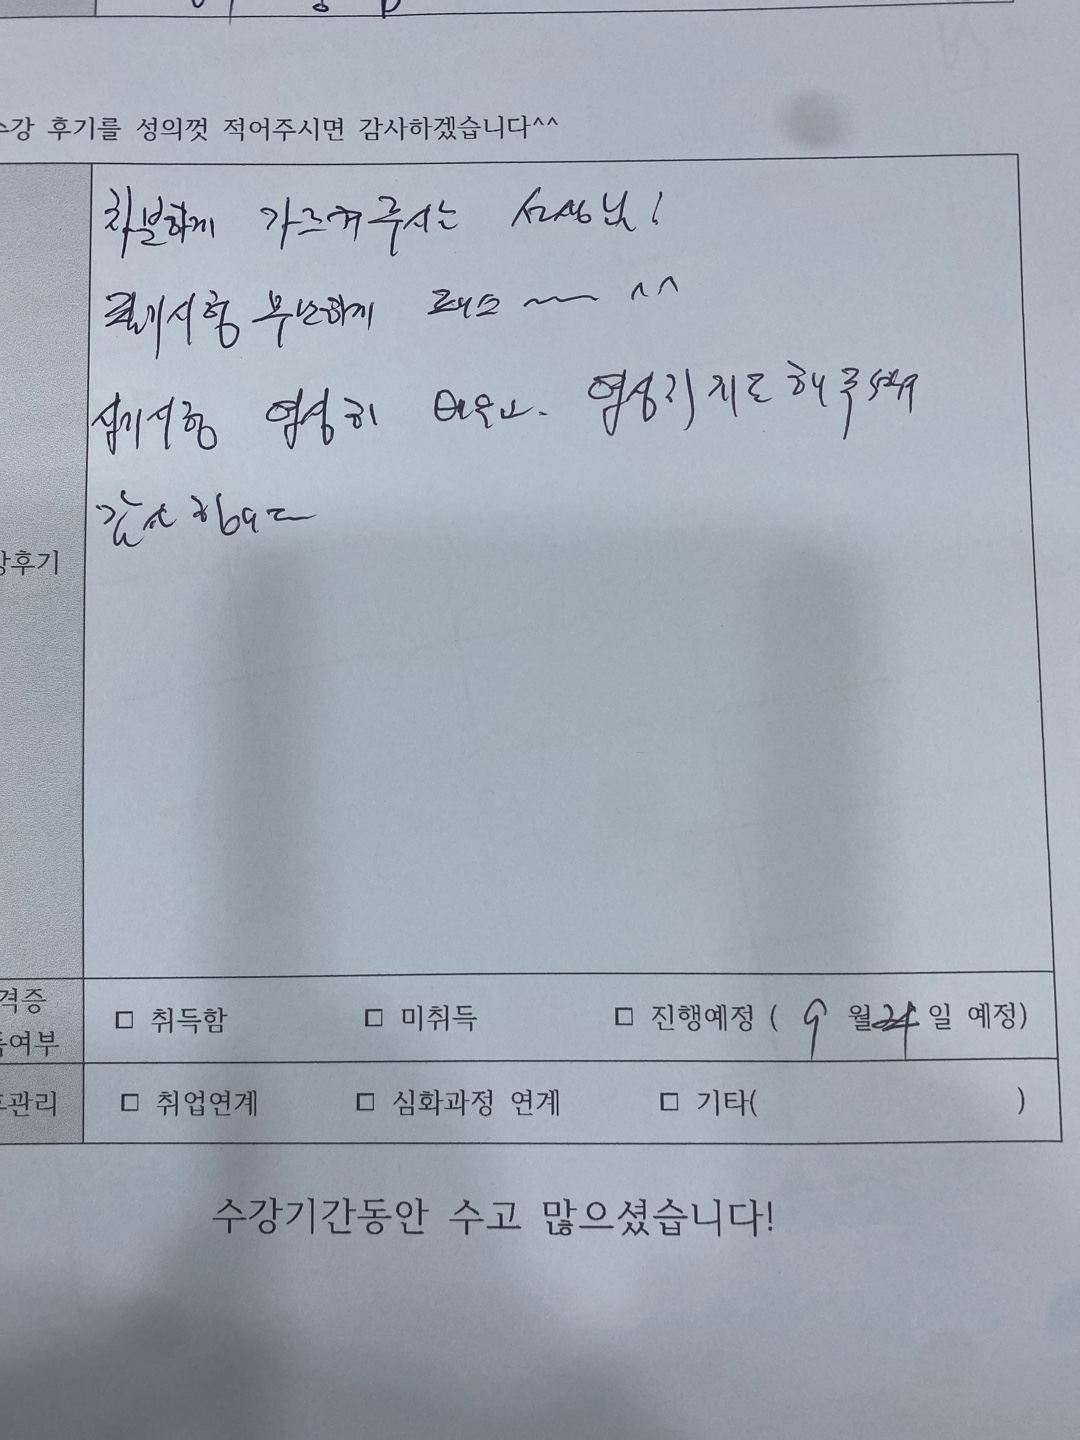 수강 후기를 성의껏 적어주시면 감사하겠습니다^^
차분하게 가르쳐주시는 선생님!
필기시험 무난하게 패스~ ^^
실기시험 열심히 배우고. 열심히 지도해주셔서
감사합니다
강후기
격증
득여부
□ 취득함 □ 미취득 □ 진행예정 ( 9 월 24 일 예정)
관리
□ 취업연계 □ 심화과정 연계 □ 기타( )
수강기간동안 수고 많으셨습니다!